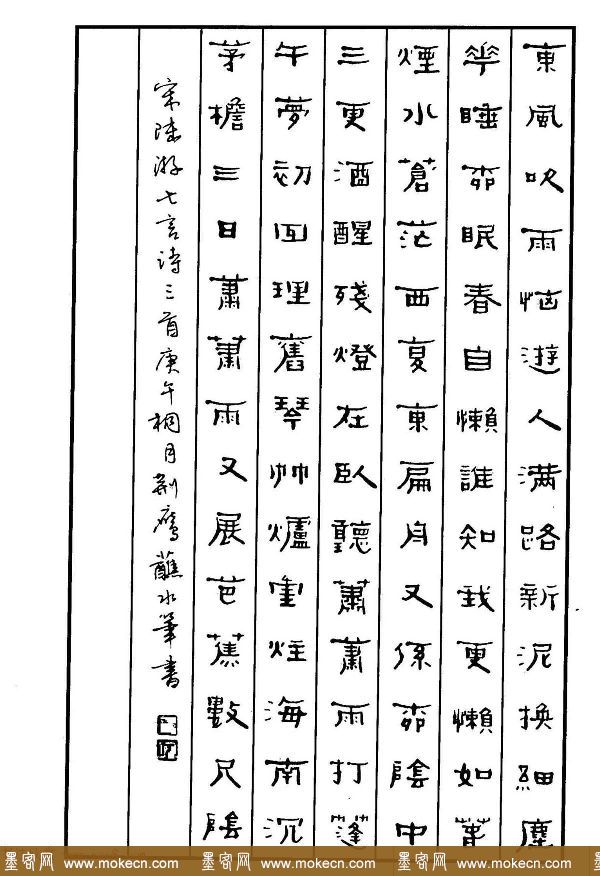 東風吹雨恼遊人满路新泥換細塵
花睡柳眠春自懶誰知我更懶如春
煙水蒼茫西夏東扁舟又係柳陰中
三更酒醒殘燈在臥聽蕭蕭雨打蓬
午夢初回理舊琴竹爐重炷海南沉
茅檐三日蕭蕭雨又展芭蕉數尺陰
宋陆游七言诗三首庚午桐月荆鹰蘸水筆書
墨客网 www.mokecn.com 墨客网 www.mokecn.com 墨客网 www.mokecn.com